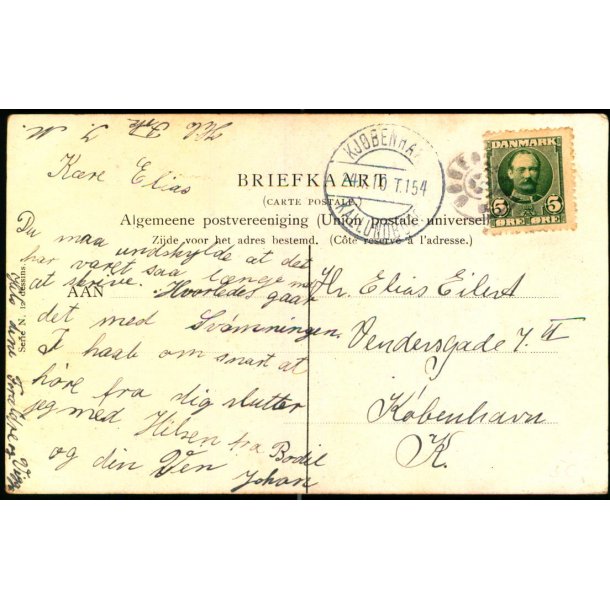 Kære Elias
Du maa undskylde at det
har varet saa længe m
at skrive. Hvorledes gaar
det med Svømningen
I haab om snart at
høre fra dig slutter
jeg med Hilsen fra Bodil
og din Ven
Johan
BRIEFKAART
(CARTE POSTALE)
Algemeene postvereeniging (Union postale universelle)
Zijde voor het adres bestemd. (Côté réservé à l'adresse.)
AAN
Hr. Elias Eilert
Vendersgade 7. II
København
K.
KJØBENHA
T.154
DANMARK
5 5
ØRE ØRE
Serie N. 12 dessins.